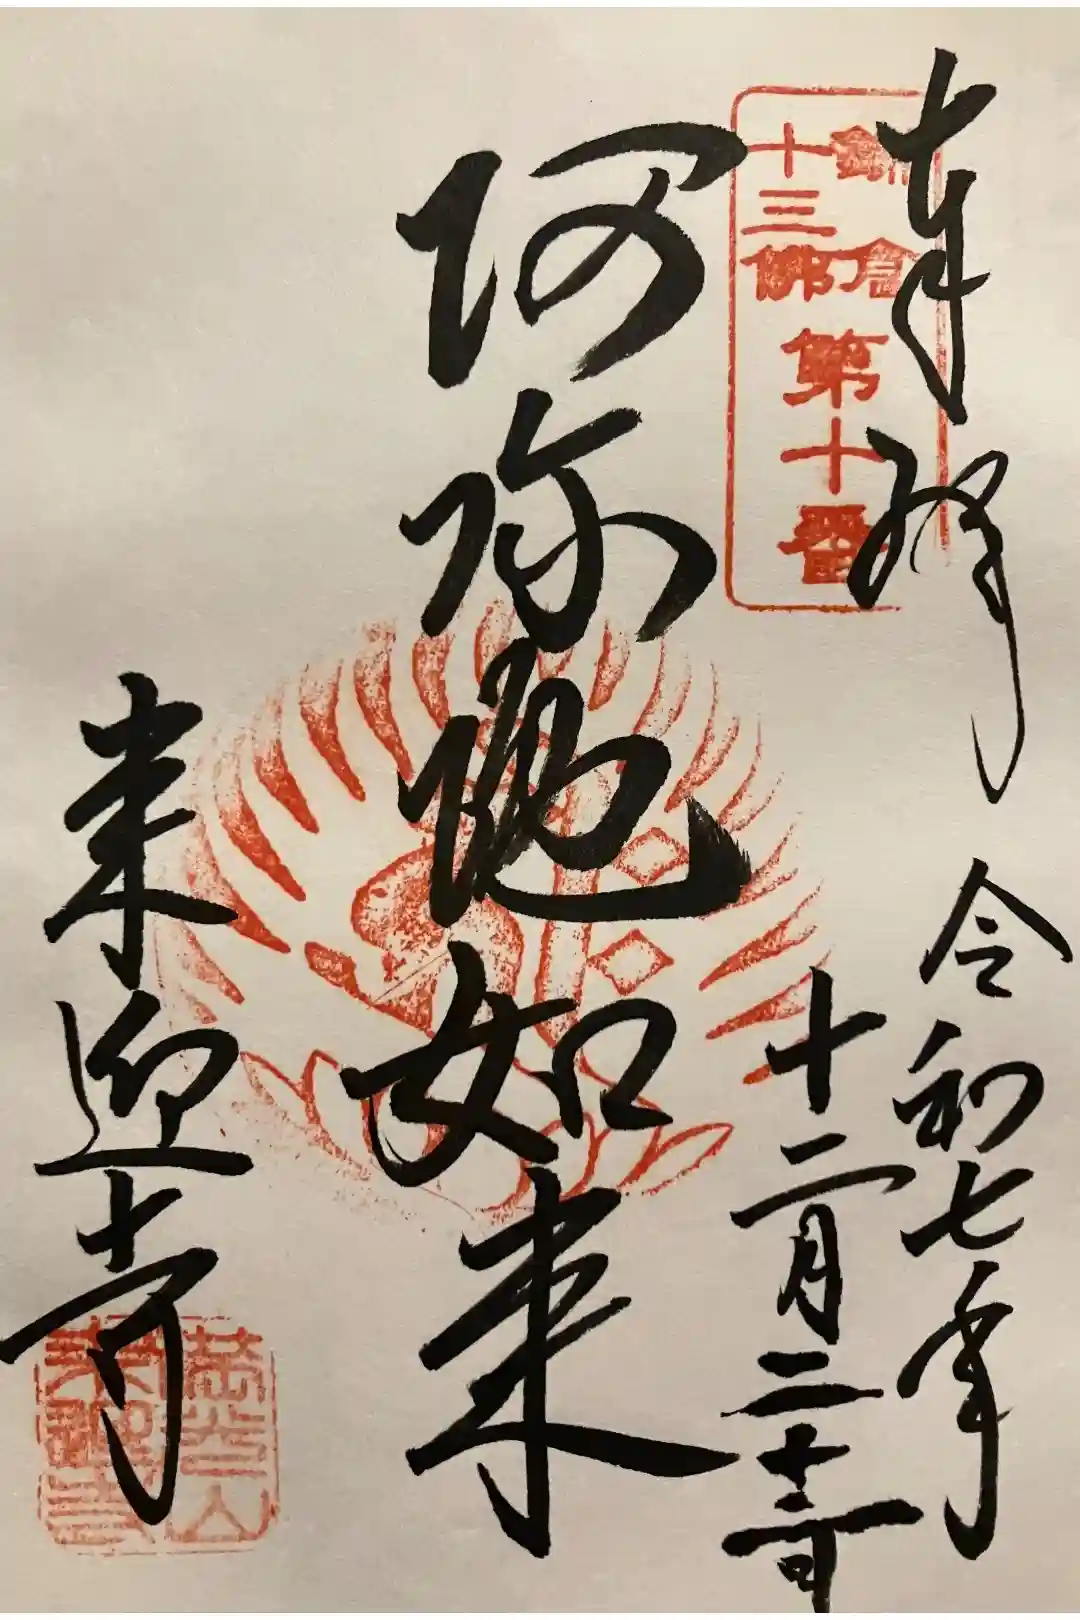 奉拝
鎌倉
十三佛
第十番
令和七年
十二月二十二日
阿弥陀如来
来迎寺